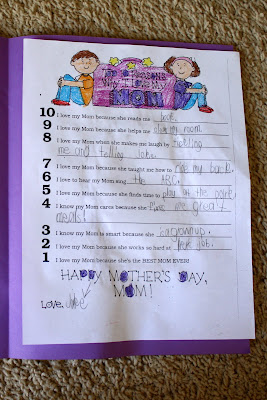 TOP 10 REASONS
MOM
10 I love my Mom because she reads me book.
9 I love my Mom because she helps me my room.
8 I love my Mom when she makes me laugh by tickling
me and telling Joke.
7 I love my Mom because she taught me how to my back.
6 I love to hear my Mom sing ABC.
5 I love my Mom because she finds time to play at the park.
4 I know my Mom cares because she me great
meals!
3 I know my Mom is smart because she
2 I love my Mom because she works so hard at her job.
1 I love my Mom because she's the BEST MOM EVER!
HAPPY MOTHER'S DAY,
MOM!
Love,